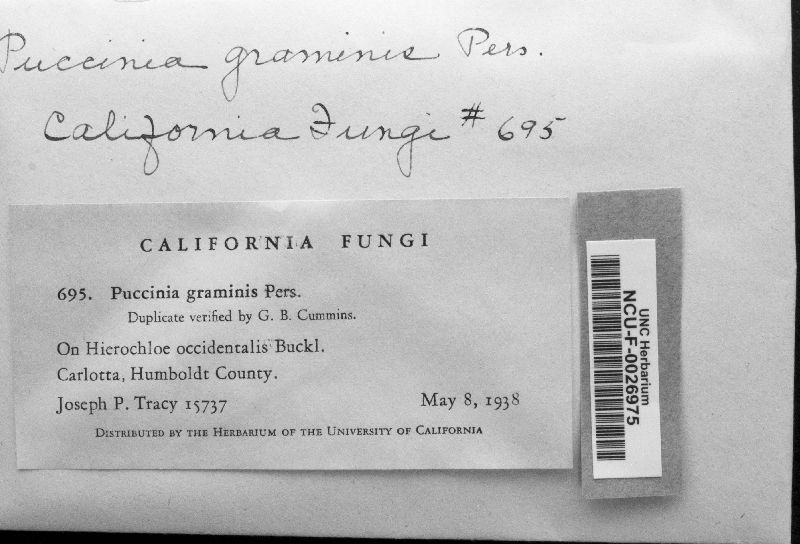 Puccinia graminis Pers.
California Fungi # 695
CALIFORNIA FUNGI
695. Puccinia graminis Pers.
Duplicate verified by G. B. Cummins.
On Hierochloe occidentalis Buckl.
Carlotta, Humboldt County.
Joseph P. Tracy 15737 May 8, 1938
DISTRIBUTED BY THE HERBARIUM OF THE UNIVERSITY OF CALIFORNIA
UNC Herbarium
NCU-F-0026975